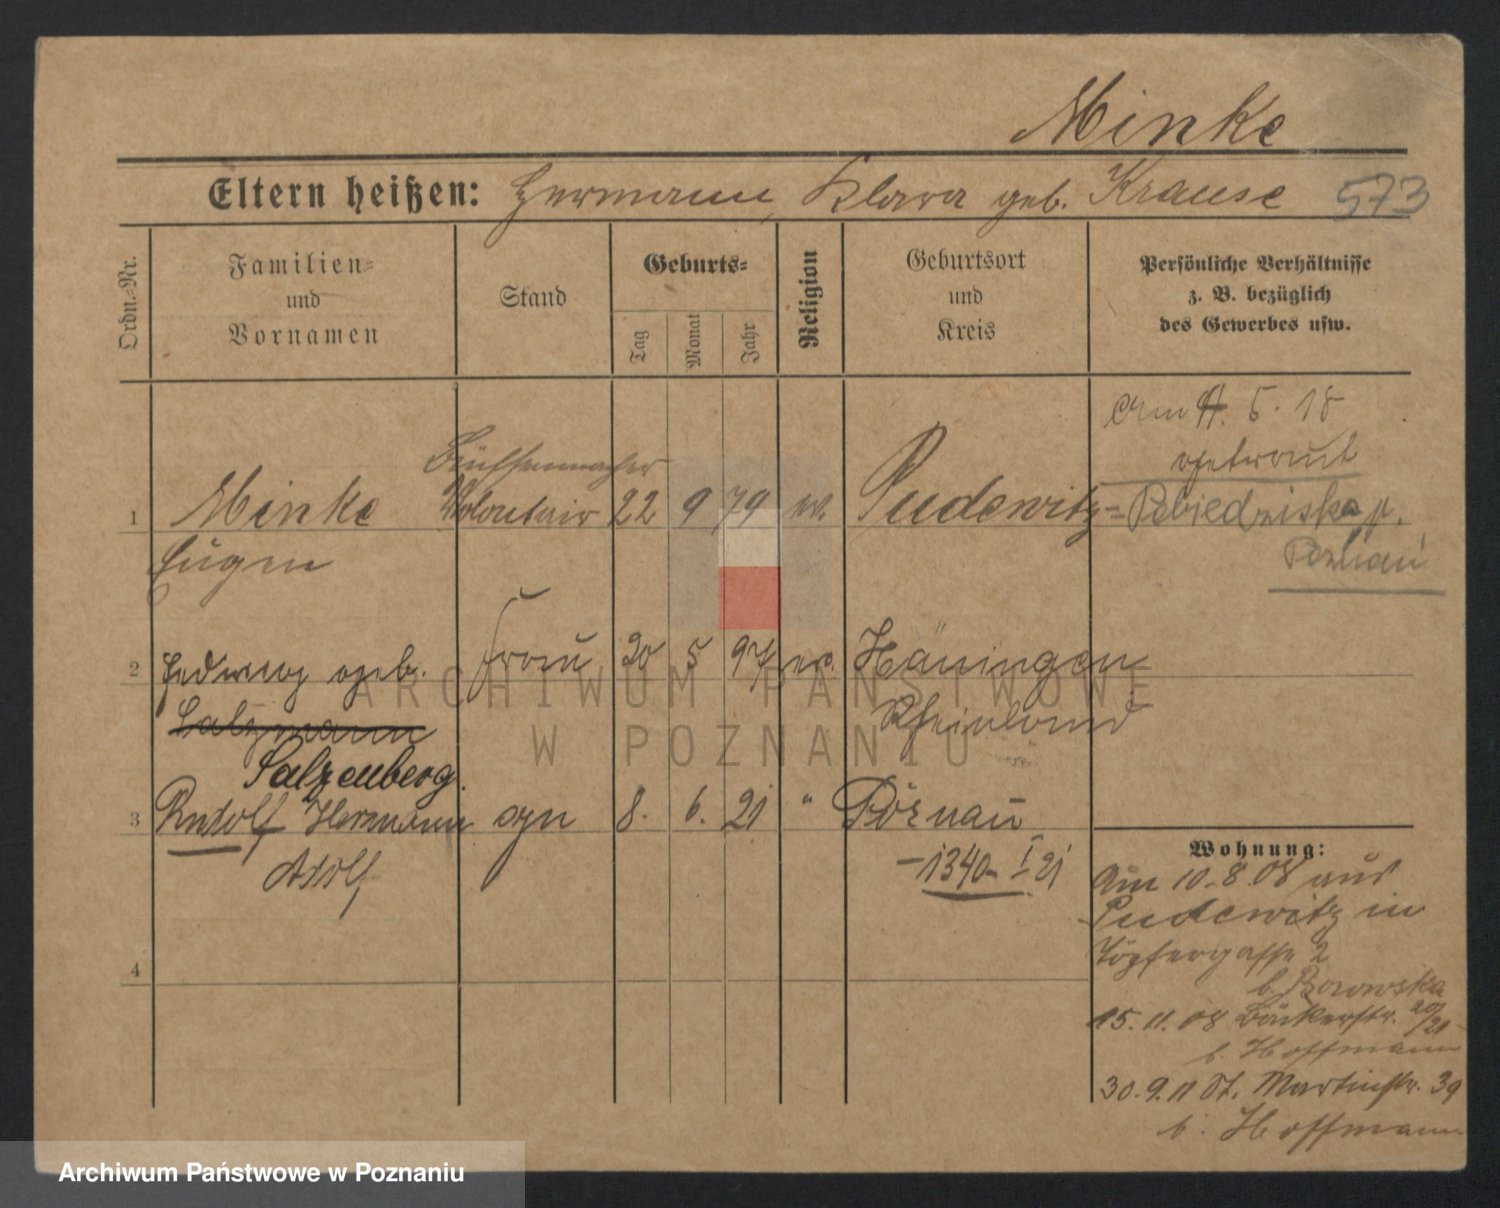 Minke
Eltern heißen: Hermann, Klara geb. Krause 573
Ordn.-Nr.
Familien-
und
Vornamen
Stand
Geburts-
Tag
Monat
Jahr
Religion
Geburtsort
und
Kreis
Persönliche Verhältnisse
z. B. bezüglich
des Gewerbes usw.
5. 18
getraut
Büchsenmacher
1 Minke Volontair 22 9 79 ev. Pudewitz = Pobiedziska p.
Eugen
Poznań
2 Hedwig geb. Frau 20 5 97 ev. Häningen
Salzmann
Rheinland
Salzenberg.
3 Rudolf Hermann syn 8. 6. 21 " Poznań
Adolf
-1340- I 21
4
Wohnung:
Am 10.8.08 aus
Pudewitz in
Töpfergasse 2
b. Borowska
15.11.08 Bäckerstr. 20/21
b. Hoffmann
30.9.11 St. Martinstr. 39
b. Hoffmann
ARCHIWUM PAŃSTWOWE
W POZNANIU
Archiwum Państwowe w Poznaniu